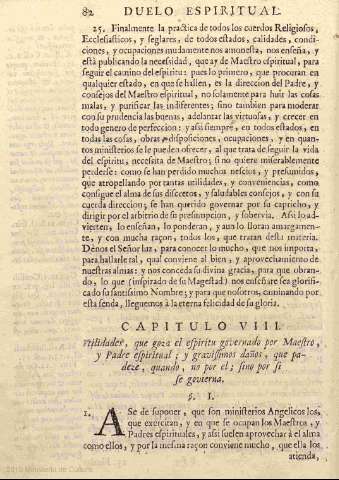 82 DUELO ESPIRITUAL.
25. Finalmente la practica de todos los cuerdos Religiosos,
Ecclesiasticos, y seglares, de todos estados, calidades, condi-
ciones, y ocupaciones mudamente nos amonesta, nos enseña, y
està publicando la necessidad, que ay de Maestro espiritual, para
seguir el camino del espiritu: pues lo primero, que procuran en
qualquier estado, en que se hallen, es la direccion del Padre, y
consejos del Maestro espiritual, no solamente para huir las cosas
malas, y purificar las indiferentes; sino tambien para moderar
con su prudencia las buenas, adelantar las virtuosas, y crecer en
todo genero de perfeccion: y assi siempre, en todos estados, en
todas las cosas, obras, disposiciones, ocupaciones, y en quan-
tos ministerios se le pueden ofrecer, al que trata de seguir la vida
del espiritu, necessita de Maestro; si no quiere miserablemente
perderse: como se han perdido muchos necios, y presumidos,
que atropellando por tantas utilidades, y conveniencias, como
consigue el alma de sus discretos, y saludables consejos, y con su
cuerda direccion; se han querido governar por su capricho, y
dirigir por el arbitrio de su presumpcion, y sobervia. Assi lo ad-
vierten, lo enseñan, lo ponderan, y aun lo lloran amargamen-
te, y con mucha raçon, todos los, que tratan desta materia.
Dénos el Señor luz, para conocer lo mucho, que nos importa,
para hallarle tal, qual conviene al bien, y aprovechamiento de
nuestras almas: y nos conceda su divina gracia, para que obran-
do, lo que (inspirado de su Magestad) nos enseñare sea glorifi-
cado su santissimo Nombre; y para que nosotros, caminando por
esta senda, lleguemos à la eterna felicidad de su gloria.
CAPITULO VIII.
Utilidades, que goza el espiritu governado por Maestro,
y Padre espiritual; y gravissimos daños, que pa-
deze, quando, no por el; sino por si
se govierna.
§. I.
1. ASe de suponer, que son ministerios Angelicos los,
que exercitan, y en que se ocupan los Maestros, y
Padres espirituales, y assi suelen aprovechar à el alma
como ellos, y por la mesma raçon conviene mucho, que ella los
atienda,
2010 Ministerio de Cultura